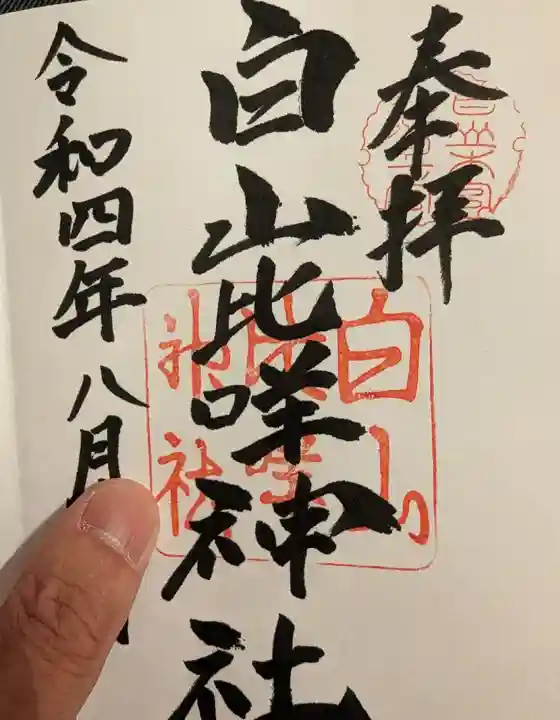 奉拝
白山比咩神社
令和四年八月
白山
神社